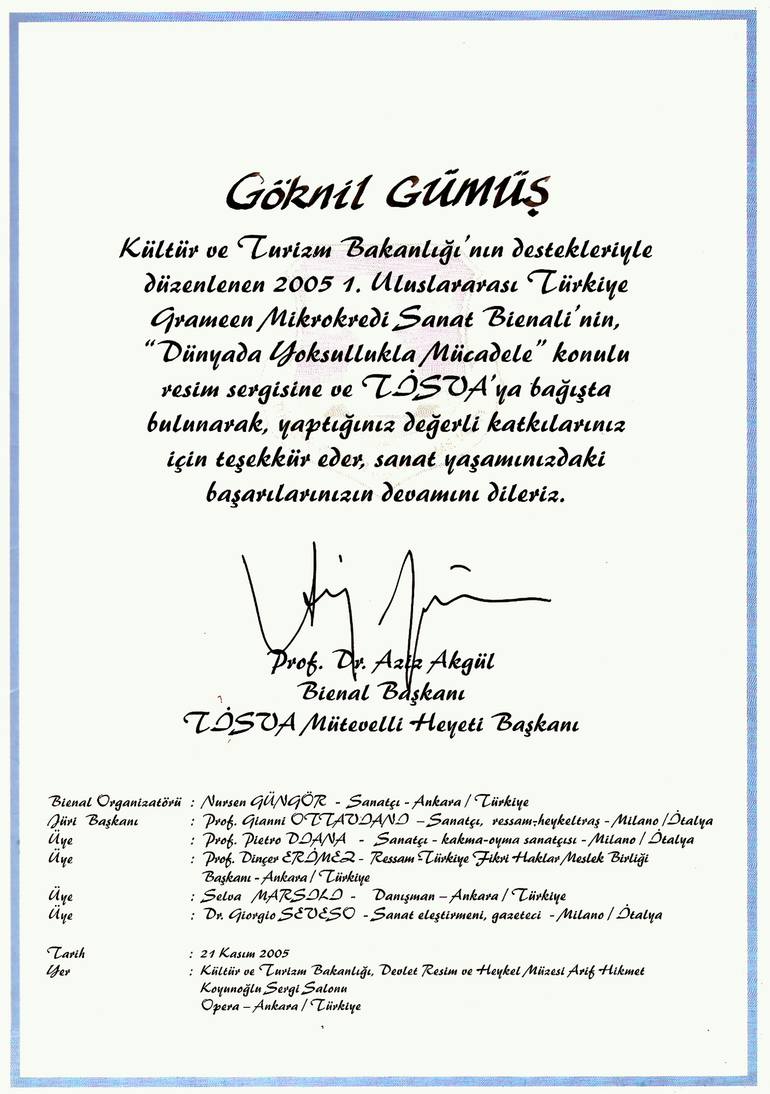 Göknil GÜMÜŞ
Kültür ve Turizm Bakanlığı'nın destekleriyle
düzenlenen 2005 1. Uluslararası Türkiye
Grameen Mikrokredi Sanat Bienali'nin,
“Dünyada Yoksullukla Mücadele” konulu
resim sergisine ve TİSVA'ya bağışta
bulunarak, yaptığınız değerli katkılarınız
için teşekkür eder, sanat yaşamınızdaki
başarılarınızın devamını dileriz.
Prof. Dr. Aziz Akgül
Bienal Başkanı
TİSVA Mütevelli Heyeti Başkanı
Bienal Organizatörü : Nursen GÜNGÖR - Sanatçı - Ankara / Türkiye
Jüri Başkanı : Prof. Gianni OTTAVIANI – Sanatçı, ressam-heykeltraş - Milano / İtalya
Üye : Prof. Pietro DIANA - Sanatçı - kakma-oyma sanatçısı - Milano / İtalya
Üye : Prof. Dinçer ERİMEZ - Ressam Türkiye Fikri Haklar Meslek Birliği
Başkanı - Ankara / Türkiye
Üye : Selva MARSILI - Danışman – Ankara / Türkiye
Üye : Dr. Giorgio SEVESO - Sanat eleştirmeni, gazeteci - Milano / İtalya
Tarih : 21 Kasım 2005
Yer : Kültür ve Turizm Bakanlığı, Devlet Resim ve Heykel Müzesi Arif Hikmet
Koyunoğlu Sergi Salonu
Opera – Ankara / Türkiye